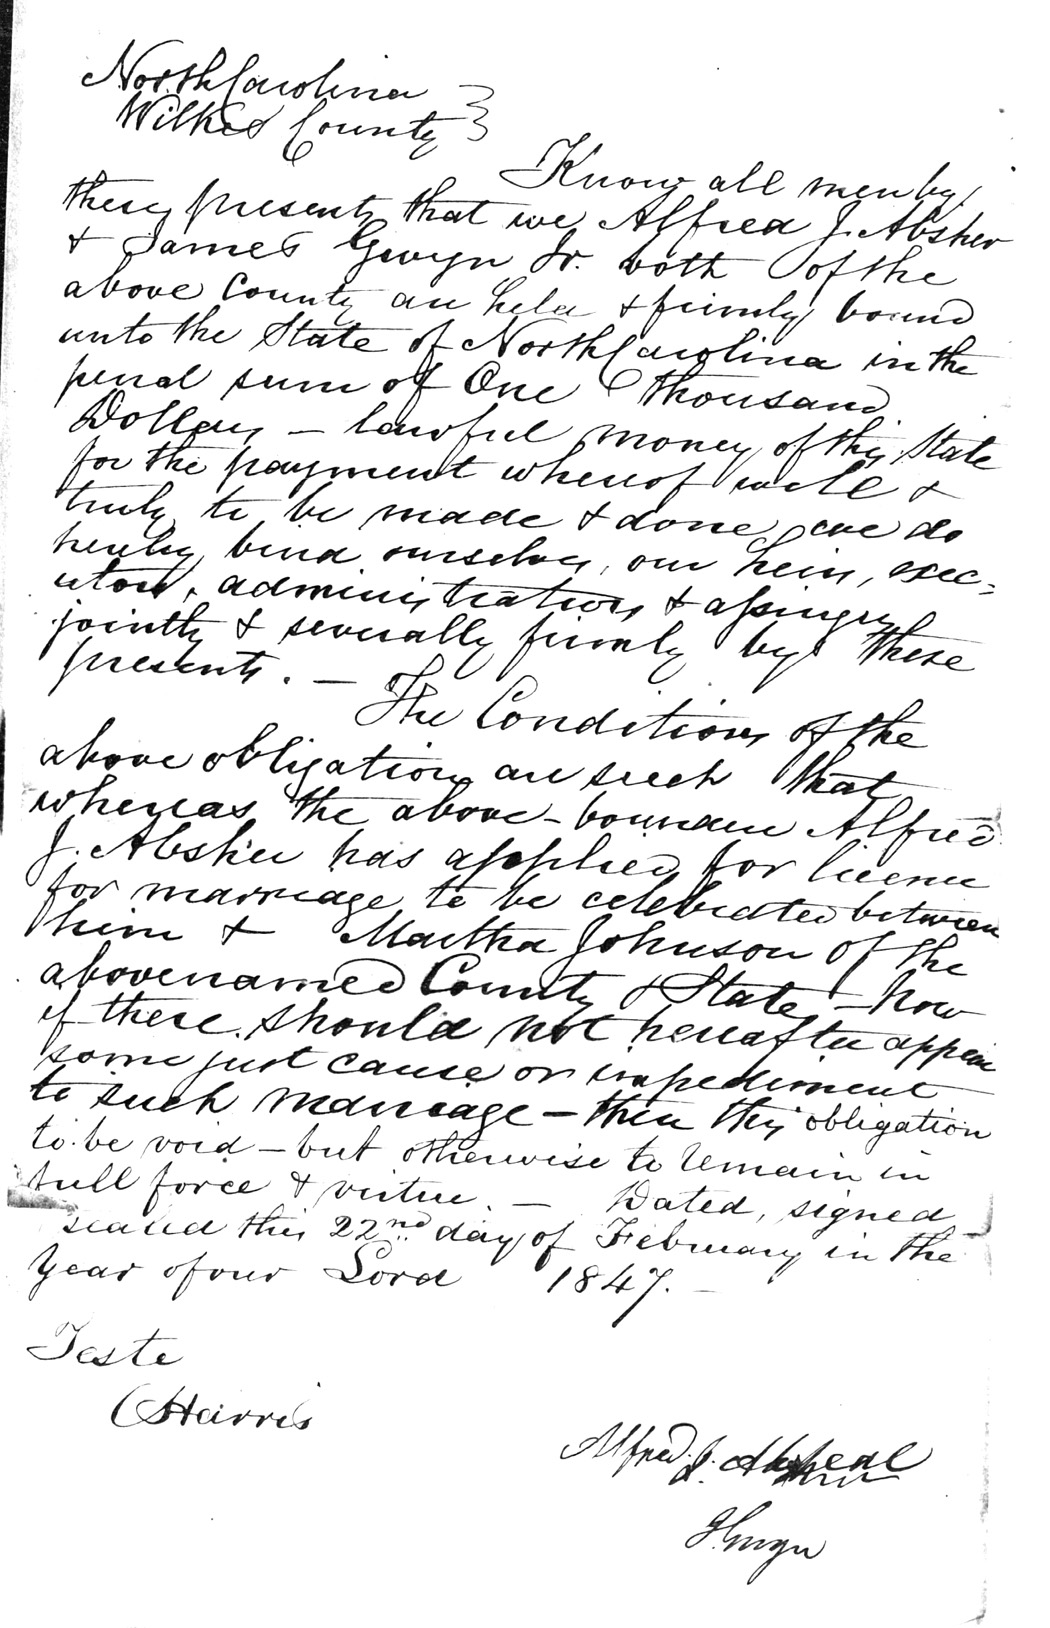 North Carolina
Wilkes County }
Know all men by
these presents that we Alfred J. Absher
& James Gwyn Jr. both of the
above County are held & firmly bound
unto the State of North Carolina in the
penal sum of One thousand
Dollars – lawful money of this State
for the payment whereof well &
truly to be made & done we do
hereby bind ourselves, our heirs, exec=
utors, administrators & assigns
jointly & severally firmly by these
presents. –
The Conditions of the
above obligation are such that
whereas the above-bounden Alfred
J. Absher has applied for licence
for marriage to be celebrated between
him & Martha Johnson of the
abovenamed County & State – Now
if there should not hereafter appear
some just cause or impediment
to such marriage – then this obligation
to be void – but otherwise to remain in
full force & virtue. – Dated, signed
sealed this 22nd day of February in the
Year of our Lord 1847. –
Teste
Harris
Alfred. J. Absher
J. Gwyn